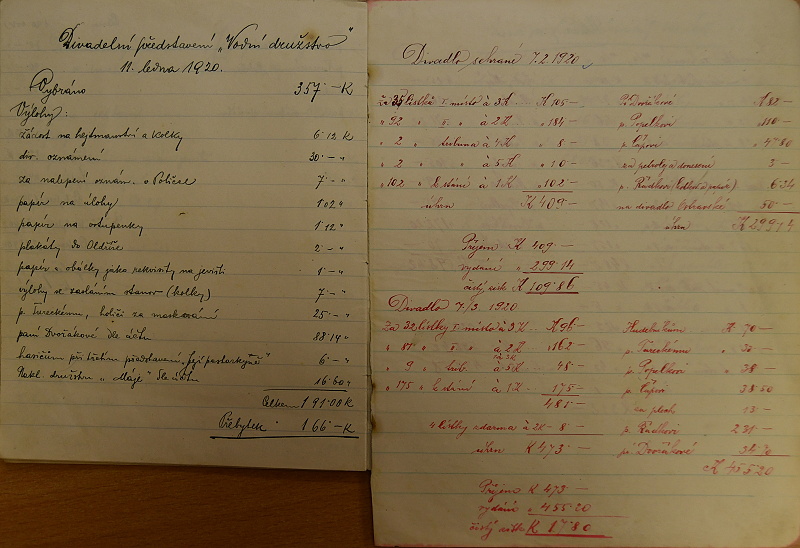 Divadelní představení „Vodní družstvo“
11. ledna 1920.
Vybráno 357·– K
Výlohy:
žádost na hejtmanství a kolky 6·12 K
div. oznámení 30·– „
za nalepení oznám. v Polici 7·– „
papír na úlohy 1·02 „
papír na vstupenky 1·12 „
plakáty do 2·– „
papír a obálky jako rekvisity na jevišti 1·– „
výlohy se zasláním stanov (kolky) 7·– „
p. Tureckému, holiči za maskování 25·– „
paní Dvořákové dle účtu 88·14 „
hasičům při třetím představení „Její pastorkyně“ 6·– „
„Máje“ dle účtu 16·60 „
Celkem 191·00 K
Přebytek 166·– K
Divadlo sehrané 7.2.1920
Za 35 lístků I. místo à 3 K ... K 105·–
„ 92 „ II. „ à 2 K „ 184·–
„ 2 „ à 4 K „ 8·–
„ 2 „ „ à 5 K „ 10·–
„ 102 „ k stání à 1 K „ 102·–
úhrn K 409·–
Pí Dvořákové K 82·–
p. Popelkovi „ 110·–
p. Čápovi „ 47·80
za petrolej a donesení 3·–
p. Rádkovi 6·34
na divadlo Ostravské 50·–
úhrn K 299·14
Příjem K 409·–
vydání „ 299·14
čistý zisk K 109·86
Divadlo 7./3. 1920
Za 32 lístky I. místo à 3 K ... K 96·–
„ 81 „ II. „ à 2 K „ 162·–
„ 9 „ à 5 K „ 45·–
„ 175 „ k stání à 1 K „ 175·–
481·–
4 lístky zdarma à 2 K – 8·–
úhrn K 473·–
Hudebníkům K 70·–
p. Tureckému „ 30·–
p. Popelkovi „ 38·–
p. Čápovi 38·50
p. Rádkovi
pí Dvořákové
K 455·20
Příjem K 473·–
vydání „ 455·20
čistý zisk K 17·80